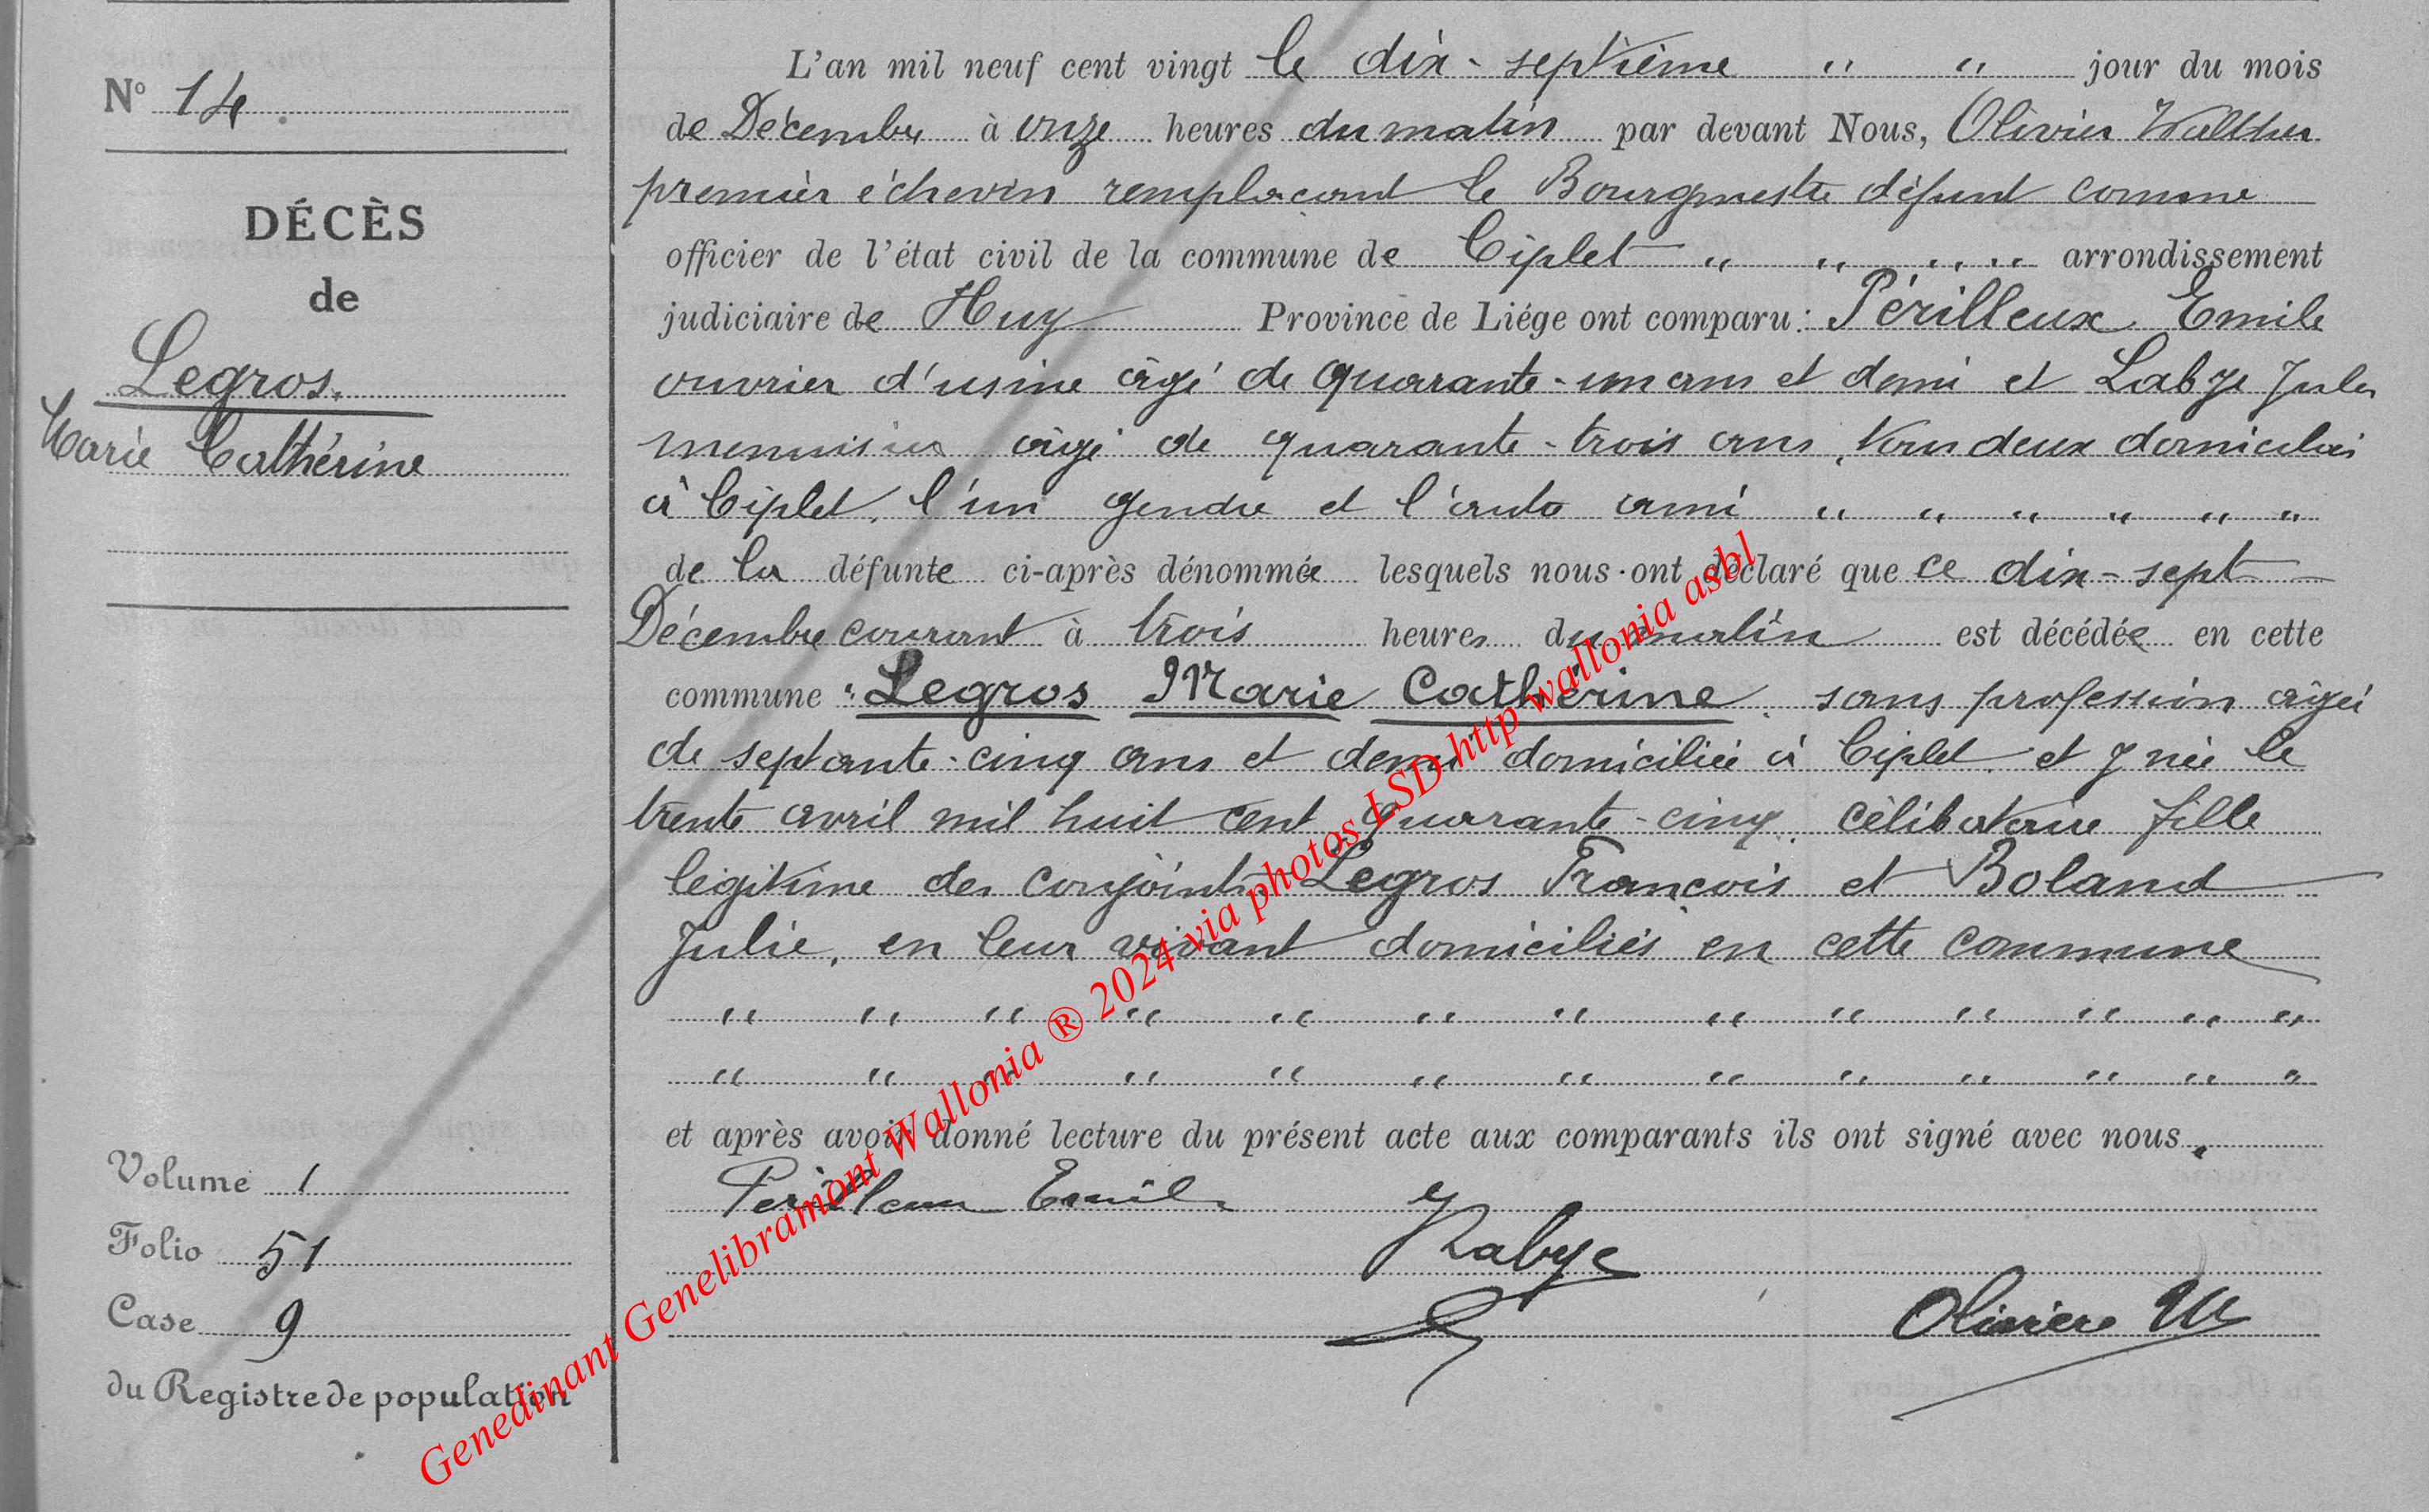 N° 14.
DÉCÈS
de
Legros.
Marie Cathérine
Volume 1
Folio 51
Case 9
du Registre de population
L'an mil neuf cent vingt le dix-septième " " jour du mois
de Décembre à onze heures du matin par devant Nous, Olivier Walther
premier échevin remplacant le Bourgmestre défunt comme
officier de l'état civil de la commune de Ciplet " " " " arrondissement
judiciaire de Huy Province de Liége ont comparu : Périlleux Emile
ouvrier d'usine âgé de quarante-un ans et demi et Labye Jules
menuisier âgé de quarante-trois ans, tous deux domiciliés
à Ciplet, l'un gendre et l'autre ami " " " " " "
de la défunte ci-après dénommée lesquels nous ont déclaré que ce dix-sept
Décembre courant à trois heures du matin est décédée en cette
commune : Legros Marie Cathérine, sans profession âgée
de septante-cinq ans et demi domiciliée à Ciplet et y née le
trente avril mil huit cent quarante-cinq, célibataire fille
légitime des conjoints Legros François et Boland
Julie, en leur vivant domiciliés en cette commune
" " " " " " " " " " " " "
" " " " " " " " " " " " "
et après avoir donné lecture du présent acte aux comparants ils ont signé avec nous.
Perilleux Emile
Labye
Olivier W
Genedinant Genelibramont Wallonia ® 2024 via photos LSD-http wallonia asbl